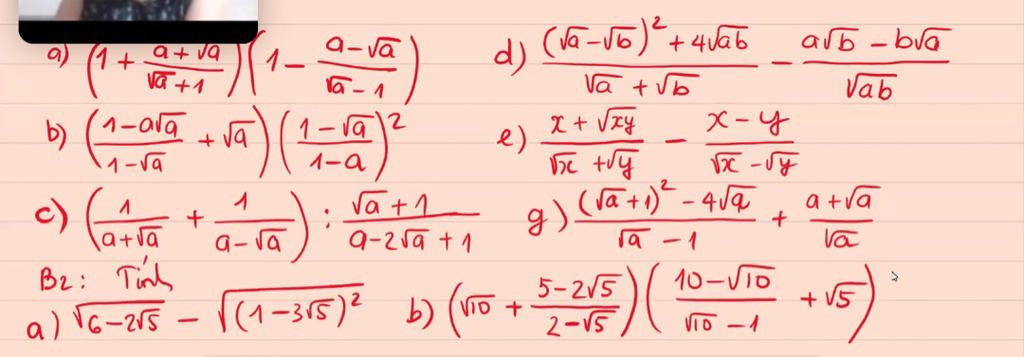 a) (1 + (a+√a)/(√a+1))(1 − (a−√a)/(√a−1))
d) ((√a−√b)² + 4√ab)/(√a+√b) − (a√b − b√a)/√ab
b) ((1−a√a)/(1−√a) + √a)((1−√a)/(1−a))²
e) (x+√xy)/(√x+√y) − (x−y)/(√x−√y)
c) (1/(a+√a) + 1/(a−√a)) : (√a+1)/(a−2√a+1)
g) ((√a+1)² − 4√a)/(√a−1) + (a+√a)/√a
B2: Tính
a) √(6−2√5) − √((1−3√5)²)
b) (√10 + (5−2√5)/(2−√5))((10−√10)/(√10−1) + √5)